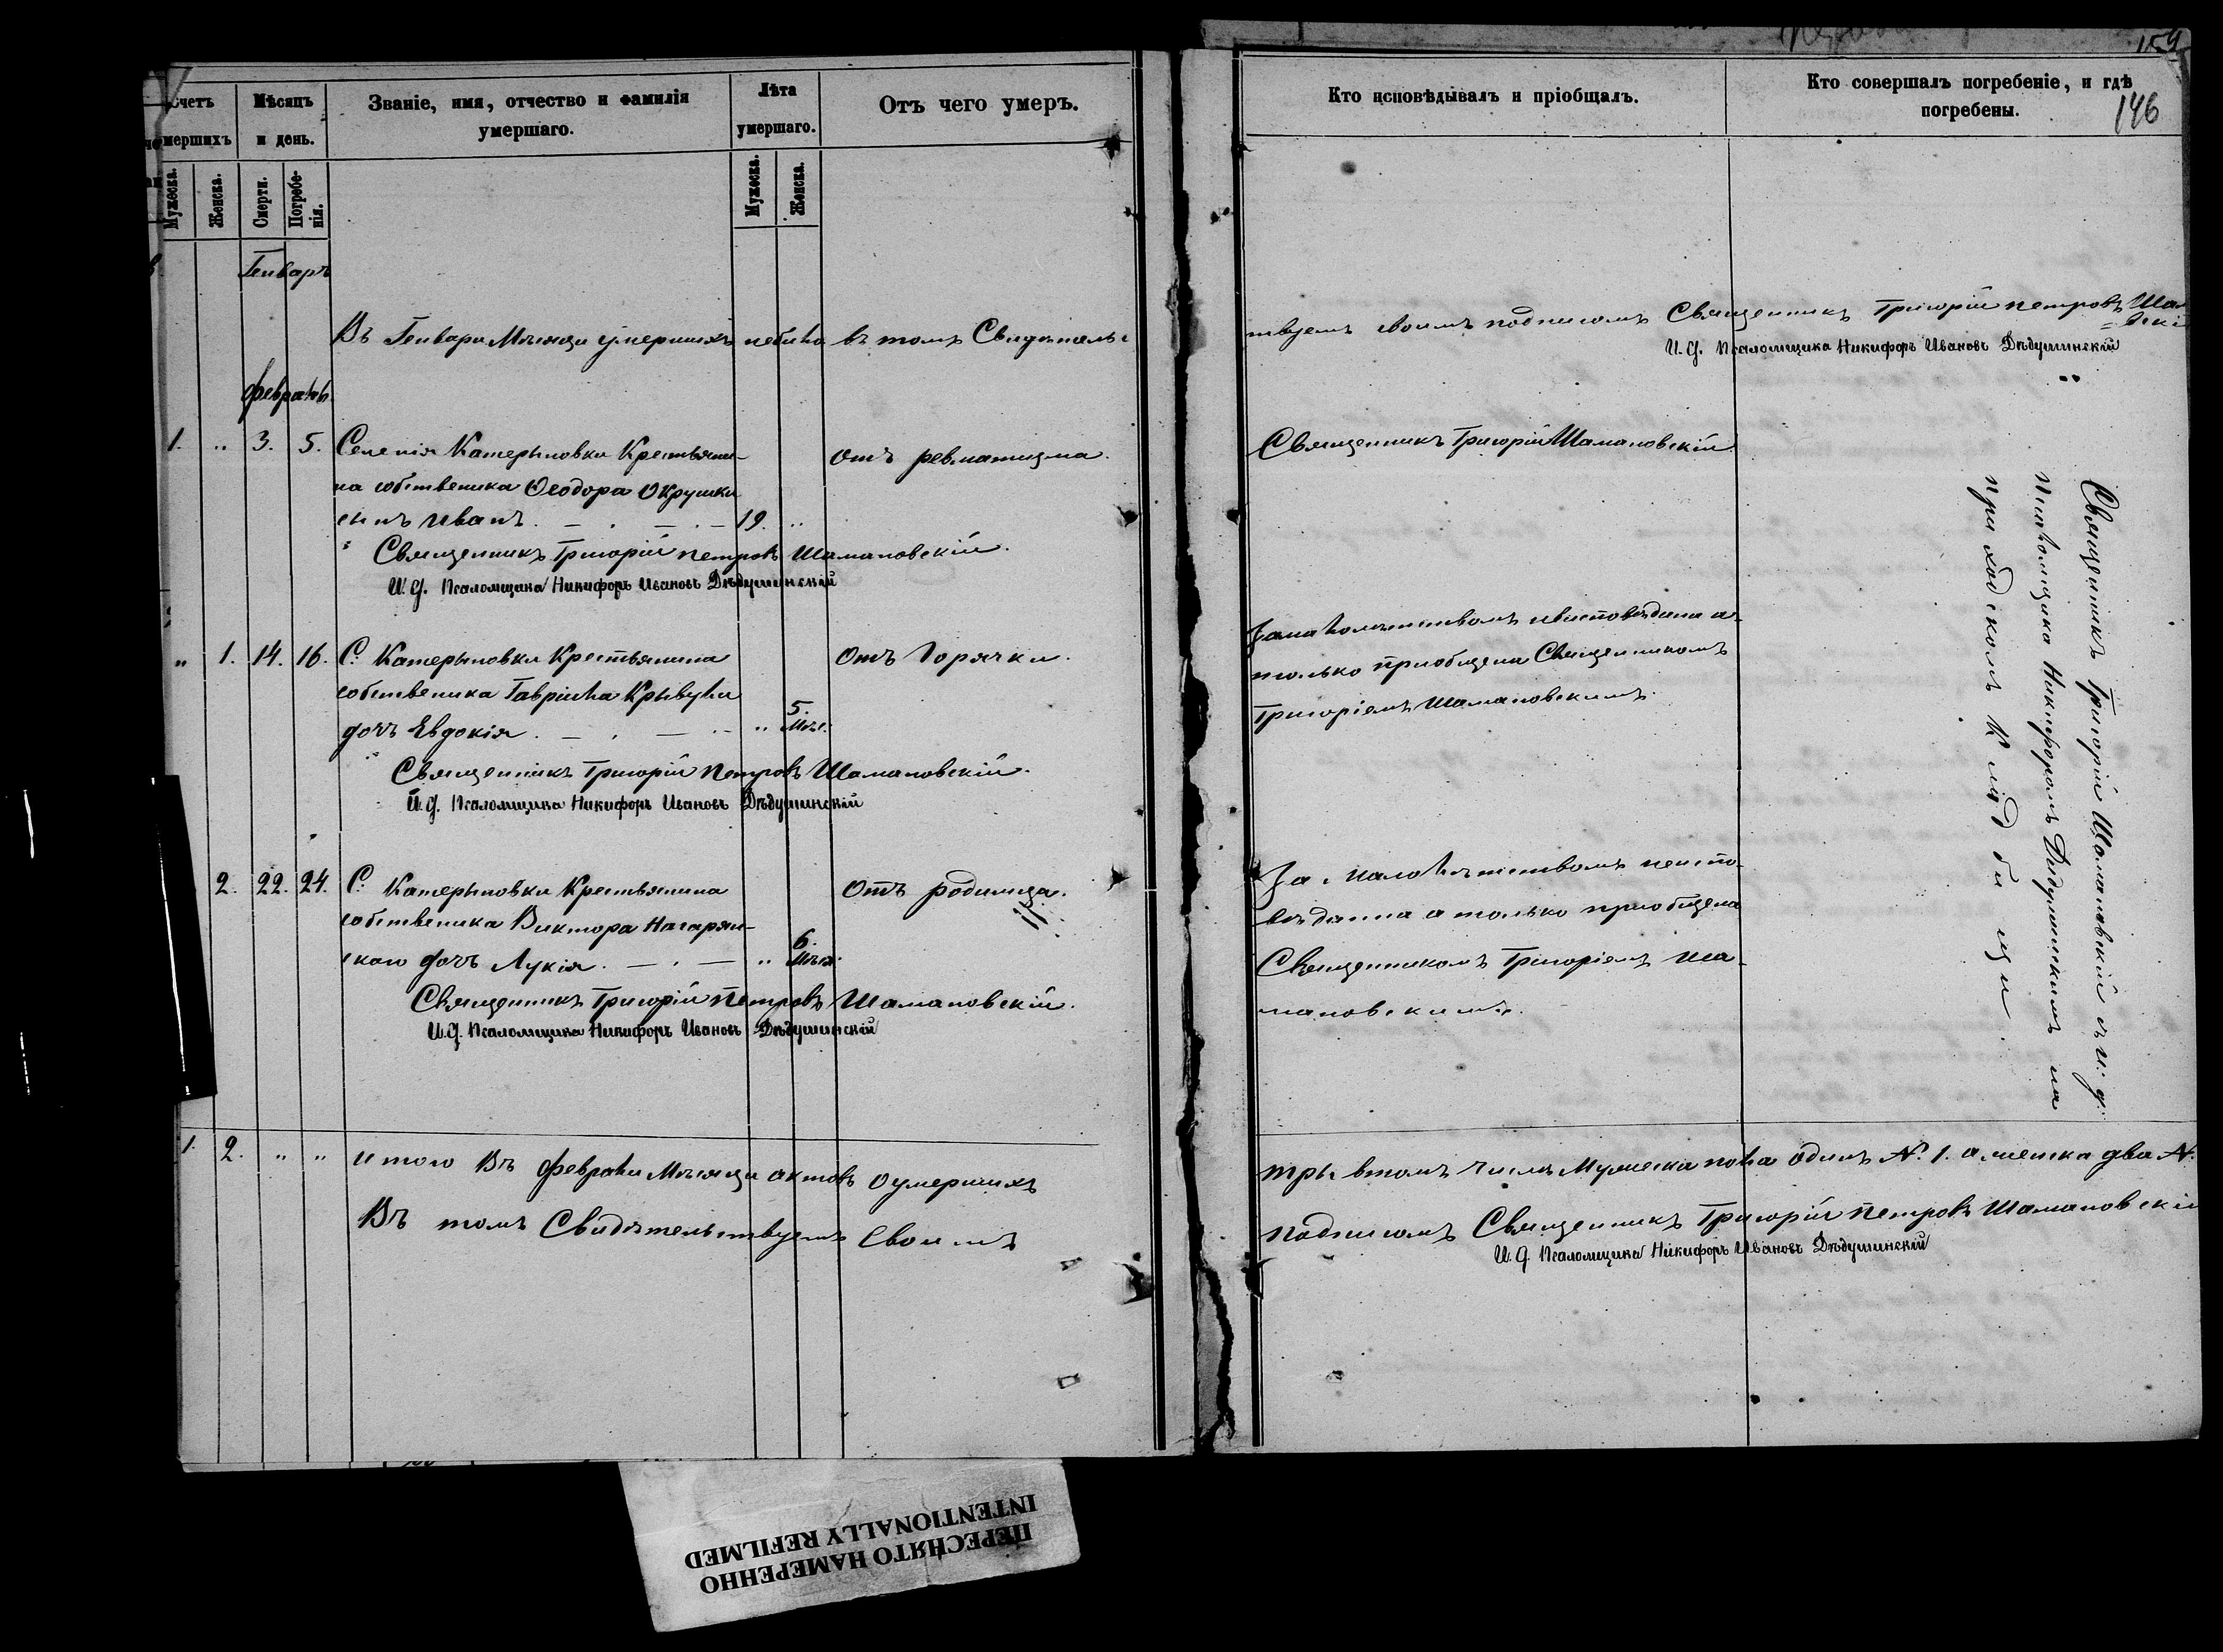 159
146
Счетъ умершихъ
Мѣсяцъ и день.
Званіе, имя, отчество и фамилія
умершаго.
Лѣта
умершаго.
Отъ чего умеръ.
Кто исповѣдывалъ и пріобщалъ.
Кто совершалъ погребеніе, и гдѣ
погребены.
Мужеска.
Женска.
Смерти.
Погребенія.
Мужеска.
Женска.
Генварь
Въ Генвари Мѣсяци умершихъ небило въ томъ Свидѣтельс
твуемъ своимъ подписомъ Священникъ Григорій петровъ Шама
=вскій
И. д. Псаломщика Никифоръ Ивановъ Дѣдушинскій
Февраль
1. „ 3. 5. Селенія Катерыновки Крестьяни-
на собственика Ѳеодора Окрушки
сынъ Иванъ. 19. „
отъ ревматизма.
Священникъ Григорій Шамановскій
Священникъ Григорій петровъ Шамановскій.
И. д. Псаломщика Никифоръ Ивановъ Дѣдушинскій
„ 1. 14. 16. С. Катерыновки Крестьянина
собственика Гавріила Крывули
дочъ Евдокія. „ 5. Мѣс.
отъ Горячки.
Замалолѣтствомъ неисповѣдана а-
только пріобщена Священникомъ
Григоріемъ Шамановскимъ.
Священникъ Григорій Петровъ Шамановскій.
И. д. Псаломщика Никифоръ Ивановъ Дѣдушинскій
2. 22. 24. С. Катерыновки Крестьянина
собственика Виктора Нагарян-
ского дочъ Лукія. „ 6. Мѣся.
отъ родимца.
За малолѣтствомъ неиспо-
вѣданна а только пріобщена
Священникомъ Григоріемъ Ша-
мановскимъ.
Священникъ Григорій Петровъ Шамановскій.
И. д. Псаломщика Никифоръ Ивановъ Дѣдушинскій
Священникъ Григорій Шамановскій съ И: д:
Псаломщика Никифоромъ Дѣдушинскимъ на
приходскомъ Кладбищи.
1. 2. „ „ итого Въ февралѣ Мѣсяци актовъ оумершихъ
тры втомъ числѣ Мужеска пола одинъ №. 1. а женска два №.
Въ томъ Свидѣтельствуемъ Своимъ
подписомъ Священникъ Григорій Петровъ Шамановскій
И. д. Псаломщика Никифоръ Ивановъ Дѣдушинскій
ПЕРЕСНЯТО НАМЕРЕННО
INTENTIONALLY REFILMED